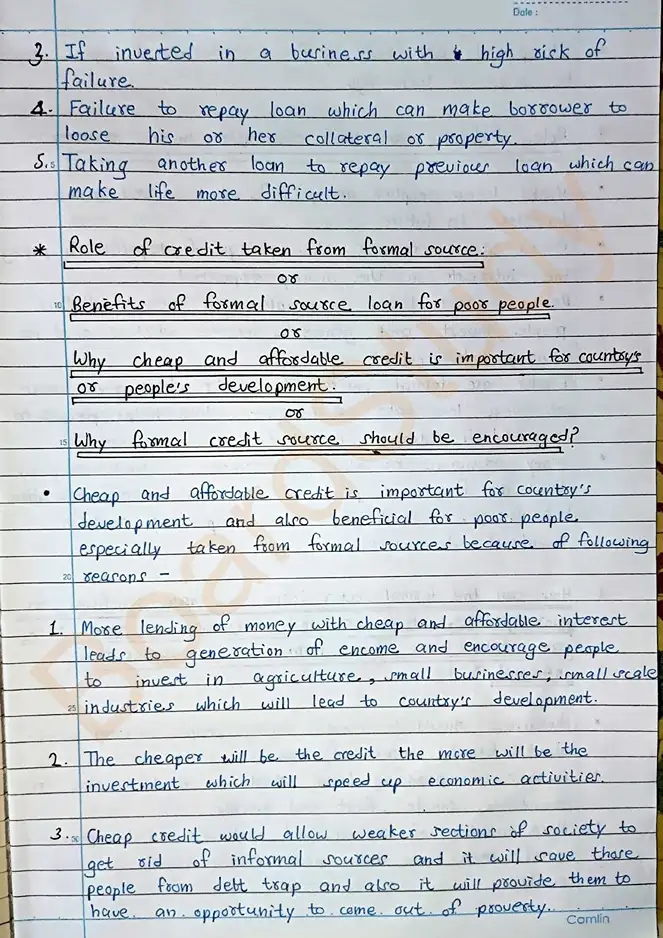 Date :
3. If invested in a business with high risk of
failure.
4. Failure to repay loan which can make borrower to
loose his or her collateral or property.
5. 5 Taking another loan to repay previous loan which can
make life more difficult.
* Role of credit taken from formal source:
or
10 Benefits of formal source loan for poor people.
or
Why cheap and affordable credit is important for country's
or people's development.
or
15 Why formal credit source should be encouraged?
• Cheap and affordable credit is important for country's
development and also beneficial for poor people
especially taken from formal sources because of following
20 reasons –
1. More lending of money with cheap and affordable interest
leads to generation of encome and encourage people
to invest in agriculture, small businesses, small scale
25 industries which will lead to country's development.
2. The cheaper will be the credit the more will be the
investment which will speed up economic activities.
3. 30 Cheap credit would allow weaker sections of society to
get rid of informal sources and it will save those
people from debt trap and also it will provide them to
have an opportunity to come out of proverty.
Camlin
BoardStudy